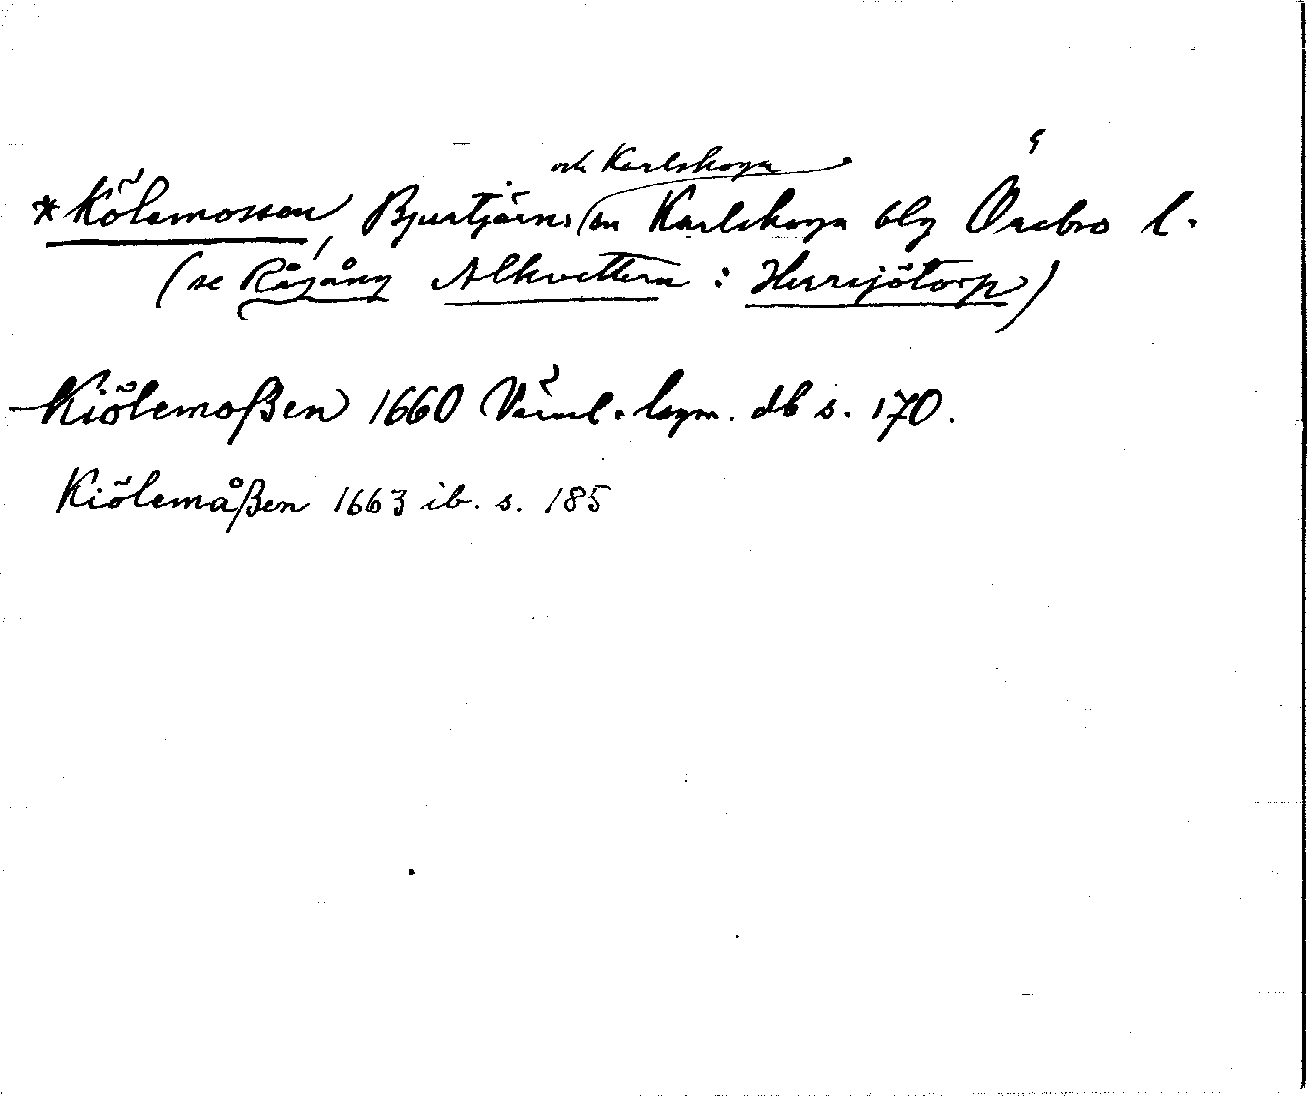 och Karlskoga
*Kölemossen, Bjurtjärns sn Karlskoga blg Örebro l.
(se Rågång Alkvettern : Herrsjötorp)
Kiölemoßen 1660 Värml. lagm. db s. 170.
Kiölemåßen 1663 ib. s. 185